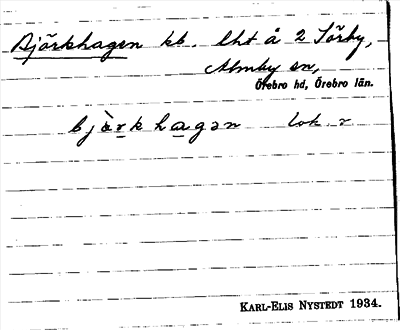 Björkhagen kb. lht å 2 Sörby,
Almby sn,
Örebro hd, Örebro län.
bjà̠rkha̠gən lok. r
KARL-ELIS NYSTEDT 1934.